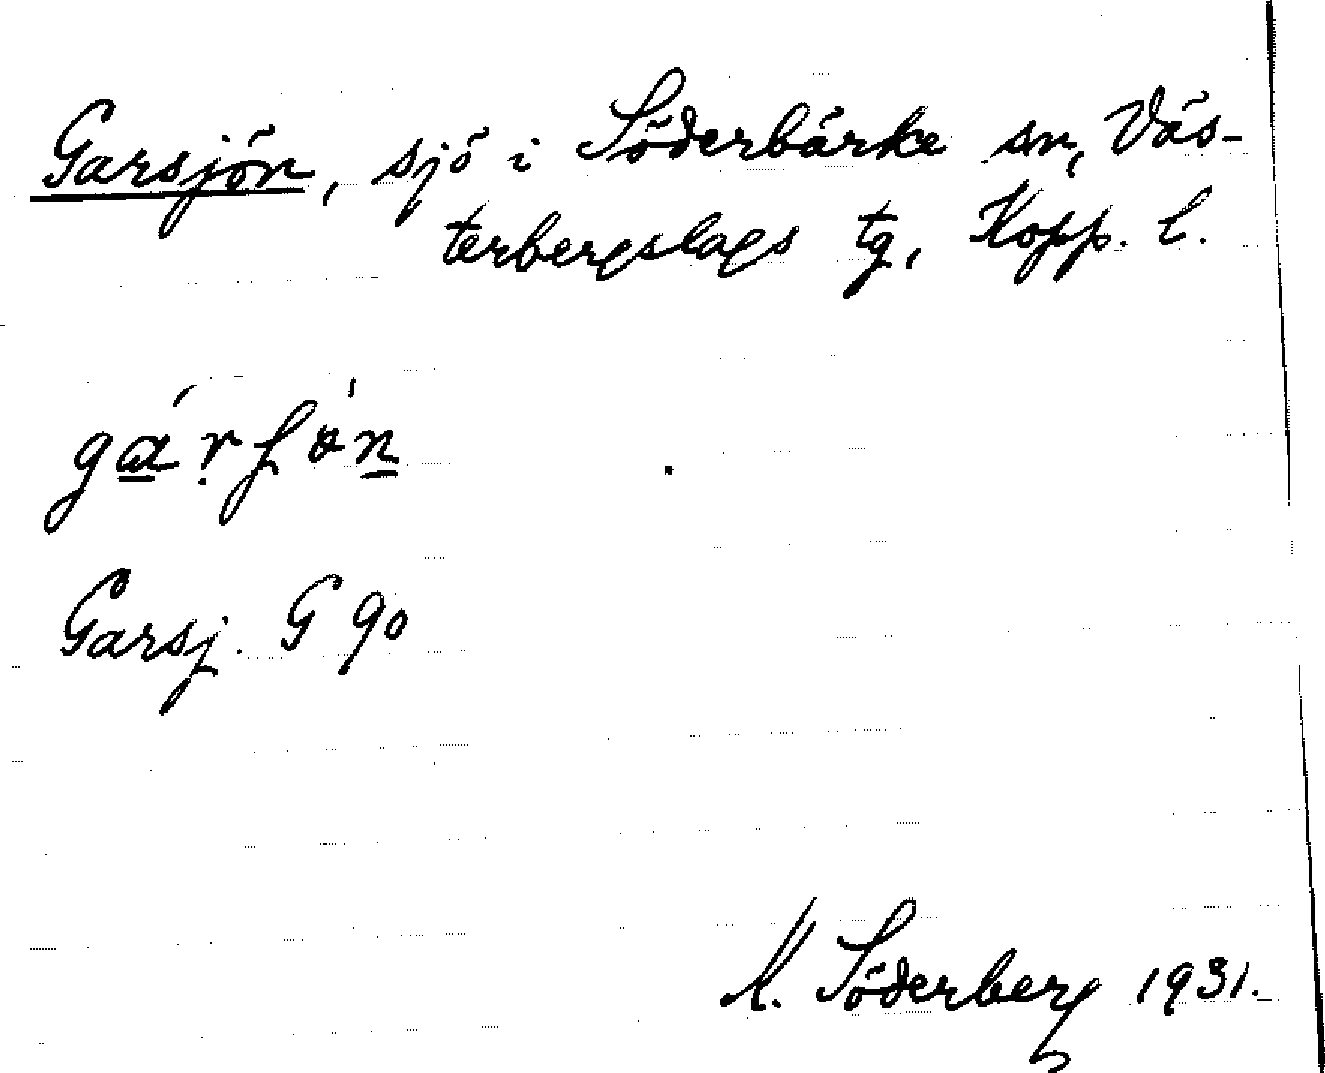 Garsjön, sjö i Söderbärke sn, Väs-
terbergslags tg, Kopp. l.
Garsj. G 90
M. Söderberg 1931.